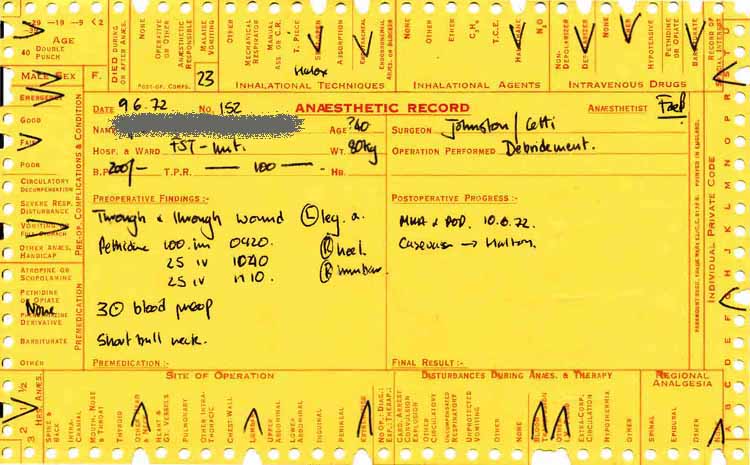 -29 -19 -9 <2
AGE
40 DOUBLE PUNCH
MALE SEX F.
DIED DURING OR AFTER ANÆS.
NONE
OPERATIVE OR OTHER
ANÆSTHETIC RESPONSIBLE
MALAISE VOMITING
OTHER
POST-OP. COMPS.
23
MECHANICAL RESPIRATOR
MANUAL ASS. OR C.R.
T. PIECE
ABSORPTION
Halox
INHALATIONAL TECHNIQUES
NONE
OTHER
ETHER
C₃H₆
T.C.E.
N₂O
INHALATIONAL AGENTS
NON-DEPOLARIZER
DEPOLARIZER
NONE
OTHER
HYPOTENSIVE
PETHIDINE OR OPIATE
BARBITURATE
INTRAVENOUS DRUGS
RECORD OF SPECIAL INTEREST
EMERGENCY
GOOD
FAIR
POOR
CIRCULATORY DECOMPENSATION
SEVERE RESP. DISTURBANCE
VOMITING OR FULL STOMACH
OTHER ANÆS. HANDICAP
PRE-OP. COMPLICATIONS & CONDITION
ATROPINE OR SCOPOLAMINE
PETHIDINE OR OPIATE
None
DERIVATIVE
BARBITURATE
OTHER
PREMEDICATION
DATE 9.6.72 No. 152 ANÆSTHETIC RECORD ANÆSTHETIST
NAME AGE ?40 SURGEON Johnston/Cetti
HOSP. & WARD FST- WT. 80kg OPERATION PERFORMED Debridement.
B.P. 200/- T.P.R. — 100 — HB.
PREOPERATIVE FINDINGS :-
Through & through wound (L) leg.
Pethidine 100. im 0420. (R) heel.
25 iv 1040 (R)
25 iv 1110.
3(O) blood preop
Short bull neck.
PREMEDICATION :-
POSTOPERATIVE PROGRESS :-
10.6.72.
Casevac → Haltom.
FINAL RESULT :-
INDIVIDUAL PRIVATE CODE
PRINTED IN ENGLAND.
A B C D E F G H I J K L M N O P Q R S T U
3 2 1½ ½
HRS. ANÆS.
SPINE & BACK
INTRA-CRANIAL
MOUTH, NOSE & THROAT
THYROID
OTHER HEAD & NECK
HEART & GT. VESSELS
PULMONARY
OTHER INTRA-THORACIC
CHEST-WALL
LUMBAR
UPPER ABDOMINAL
LOWER ABDOMINAL
INGUINAL
PERINEAL
EXTREMITIES
NO OP.: DIAG. EX., THERAP.
SITE OF OPERATION
CARD. ARREST CONVULSION EXPLOSION
OTHER CIRCULATORY
UNCOMPENSATED RESPIRATORY
UNPROVOKED VOMITING
OTHER
NONE
BLOOD TRANSFUSION
EXTRA-CORP. CIRCULATION
HYPOTHERMIA
OTHER
DISTURBANCES DURING ANÆS. & THERAPY
SPINAL
EPIDURAL
OTHER
REGIONAL ANALGESIA